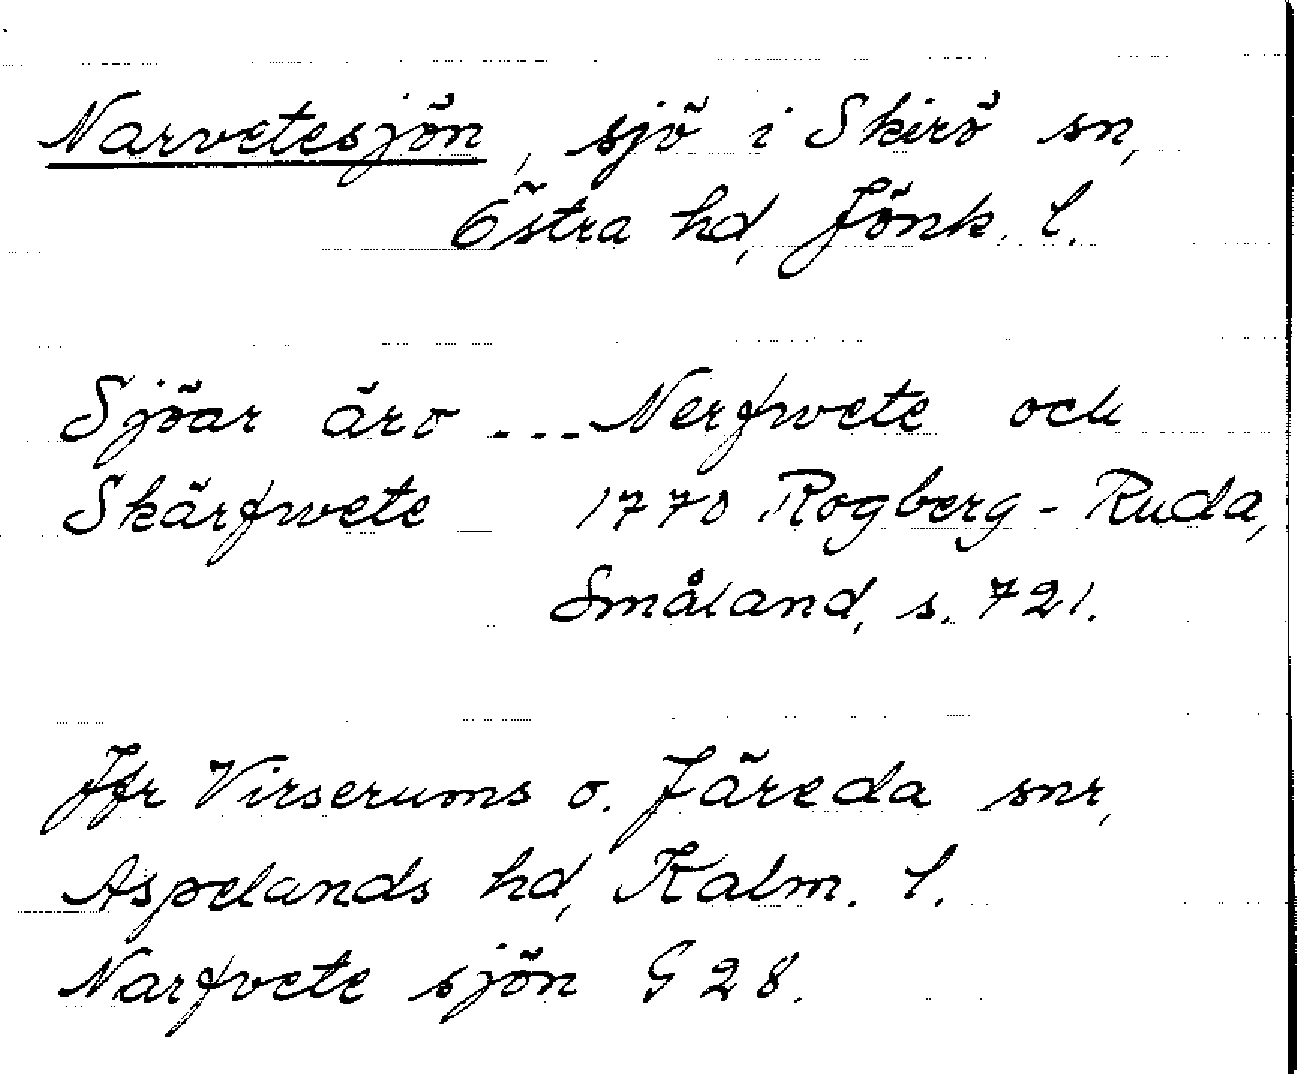 Narvetesjön, sjö i Skirö sn,
Östra hd, Jönk. l.
Sjöar äro ... Nerfwete och
Skärfwete _ 1770 Rogberg - Ruda,
Småland, s. 721.
Jfr Virserums o. Järeda snr,
Aspelands hd, Kalm. l.
Narfvete sjön G 28.